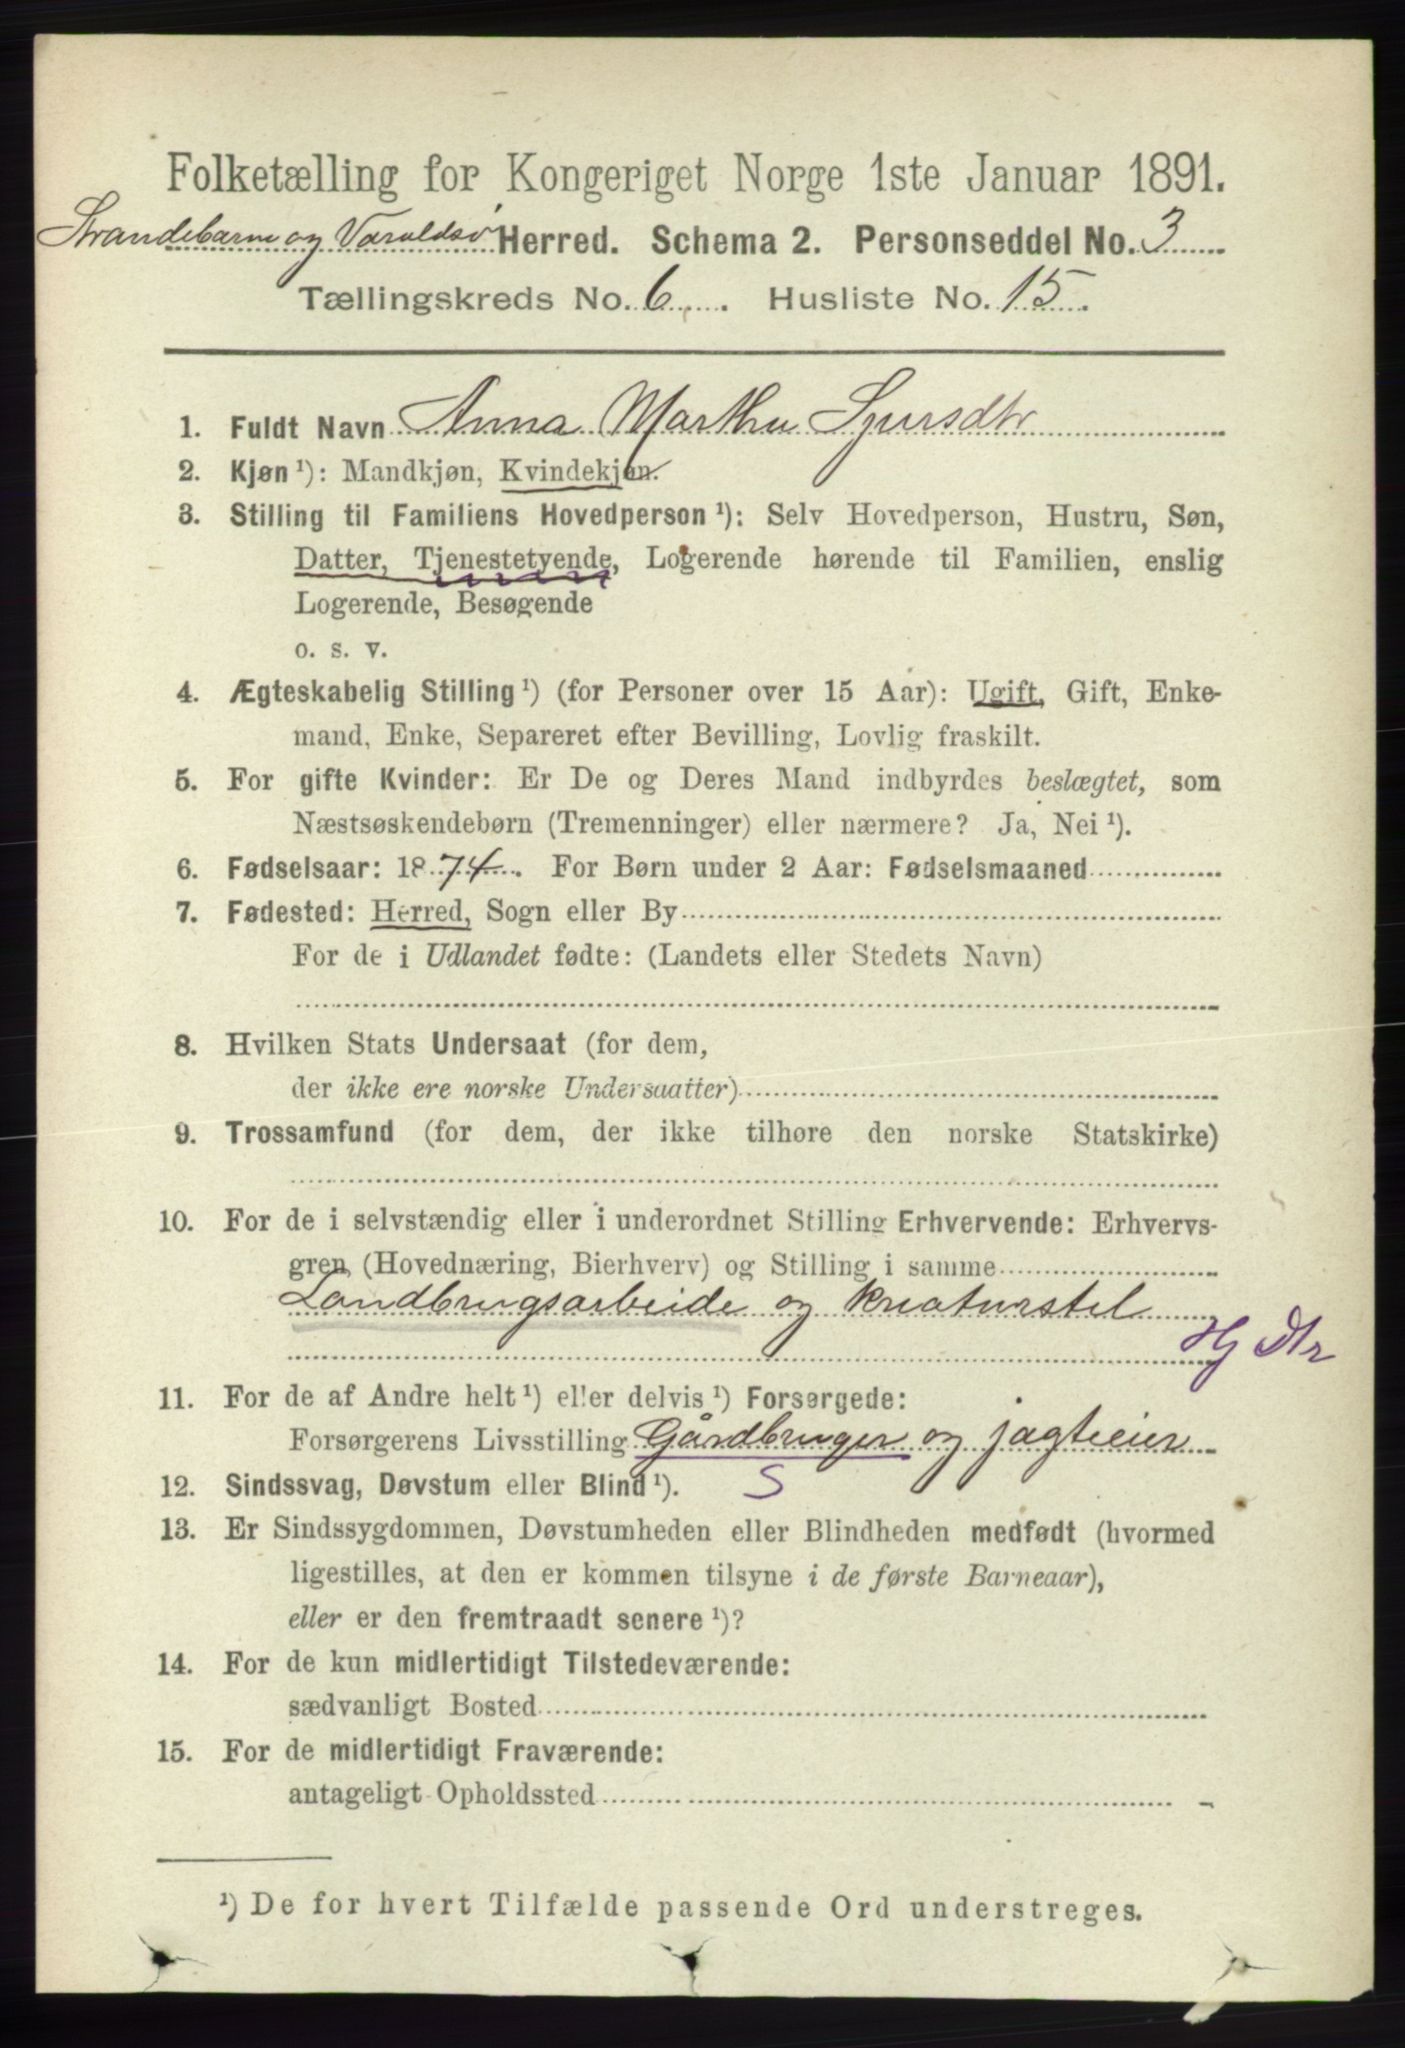 Folketælling for Kongeriget Norge 1ste Januar 1891.
Strandebarm og Varaldsø Herred. Schema 2. Personseddel No. 3
Tællingskreds No. 6. Husliste No. 15.
1. Fuldt Navn Anna Martha Sjursdtr
2. Kjøn ¹): Mandkjøn, Kvindekjøn.
3. Stilling til Familiens Hovedperson ¹): Selv Hovedperson, Hustru, Søn,
Datter, Tjenestetyende, Logerende hørende til Familien, enslig
Logerende, Besøgende
o. s. v.
4. Ægteskabelig Stilling ¹) (for Personer over 15 Aar): Ugift, Gift, Enke-
mand, Enke, Separeret efter Bevilling, Lovlig fraskilt.
5. For gifte Kvinder: Er De og Deres Mand indbyrdes beslægtet, som
Næstsøskendebørn (Tremenninger) eller nærmere? Ja, Nei ¹).
6. Fødselsaar: 1874. For Børn under 2 Aar: Fødselsmaaned
7. Fødested: Herred, Sogn eller By
For de i Udlandet fødte: (Landets eller Stedets Navn)
8. Hvilken Stats Undersaat (for dem,
der ikke ere norske Undersaatter)
9. Trossamfund (for dem, der ikke tilhøre den norske Statskirke)
10. For de i selvstændig eller i underordnet Stilling Erhvervende: Erhvervs-
gren (Hovednæring, Bierhverv) og Stilling i samme
Landbrugsarbeide og kreaturstel
Hj Dtr
11. For de af Andre helt ¹) eller delvis ¹) Forsørgede:
Forsørgerens Livsstilling Gårdbruger og jagteier
12. Sindssvag, Døvstum eller Blind ¹). S
13. Er Sindssygdommen, Døvstumheden eller Blindheden medfødt (hvormed
ligestilles, at den er kommen tilsyne i de første Barneaar),
eller er den fremtraadt senere ¹)?
14. For de kun midlertidigt Tilstedeværende:
sædvanligt Bosted
15. For de midlertidigt Fraværende:
antageligt Opholdssted
¹) De for hvert Tilfælde passende Ord understreges.